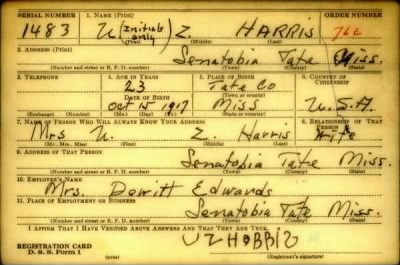 SERIAL NUMBER 1. NAME (Print) ORDER NUMBER
1483 U (Initials only) Z. HARRIS 762
(First) (Middle) (Last)
2. ADDRESS (Print)
Senatobia Tate Miss.
(Number and street or R. F. D. number) (Town) (County) (State)
3. TELEPHONE 4. AGE IN YEARS 5. PLACE OF BIRTH 6. COUNTRY OF CITIZENSHIP
23 Tate Co
DATE OF BIRTH (Town or county)
Oct 15 1917 Miss U.S.A.
(Exchange) (Number) (Mo.) (Day) (Yr.) (State or country)
7. NAME OF PERSON WHO WILL ALWAYS KNOW YOUR ADDRESS 8. RELATIONSHIP OF THAT PERSON
Mrs U. Z. Harris Wife
(Mr., Mrs., Miss) (First) (Middle) (Last)
9. ADDRESS OF THAT PERSON
Senatobia Tate Miss.
(Number and street or R. F. D. number) (Town) (County) (State)
10. EMPLOYER'S NAME
Mrs. Dewitt Edwards
11. PLACE OF EMPLOYMENT OR BUSINESS
Senatobia Tate Miss.
(Number and street or R. F. D. number) (Town) (County) (State)
I AFFIRM THAT I HAVE VERIFIED ABOVE ANSWERS AND THAT THEY ARE TRUE.
REGISTRATION CARD
D. S. S. Form 1 (Registrant's signature)